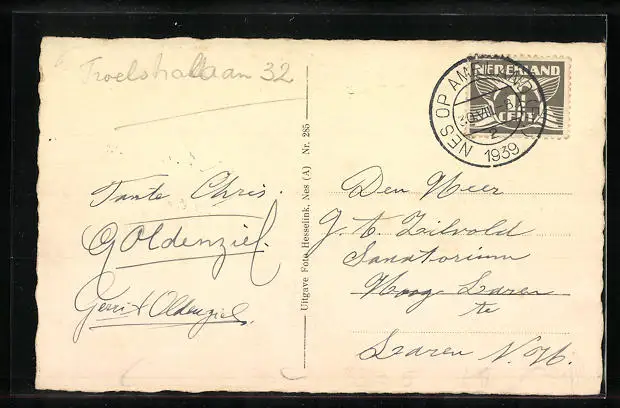 Troelstralaan 32
NEDERLAND
CENT
NES OP AMELAND
30 VIII
2
1939
Tante Chris.
G Oldenziel.
Gerrit Oldenziel.
Uitgave Foto Hesselink, Nes (A) Nr. 285
Den Heer
Zilvold
Sanatorium
Hoog Laren
te
Laren N.H.